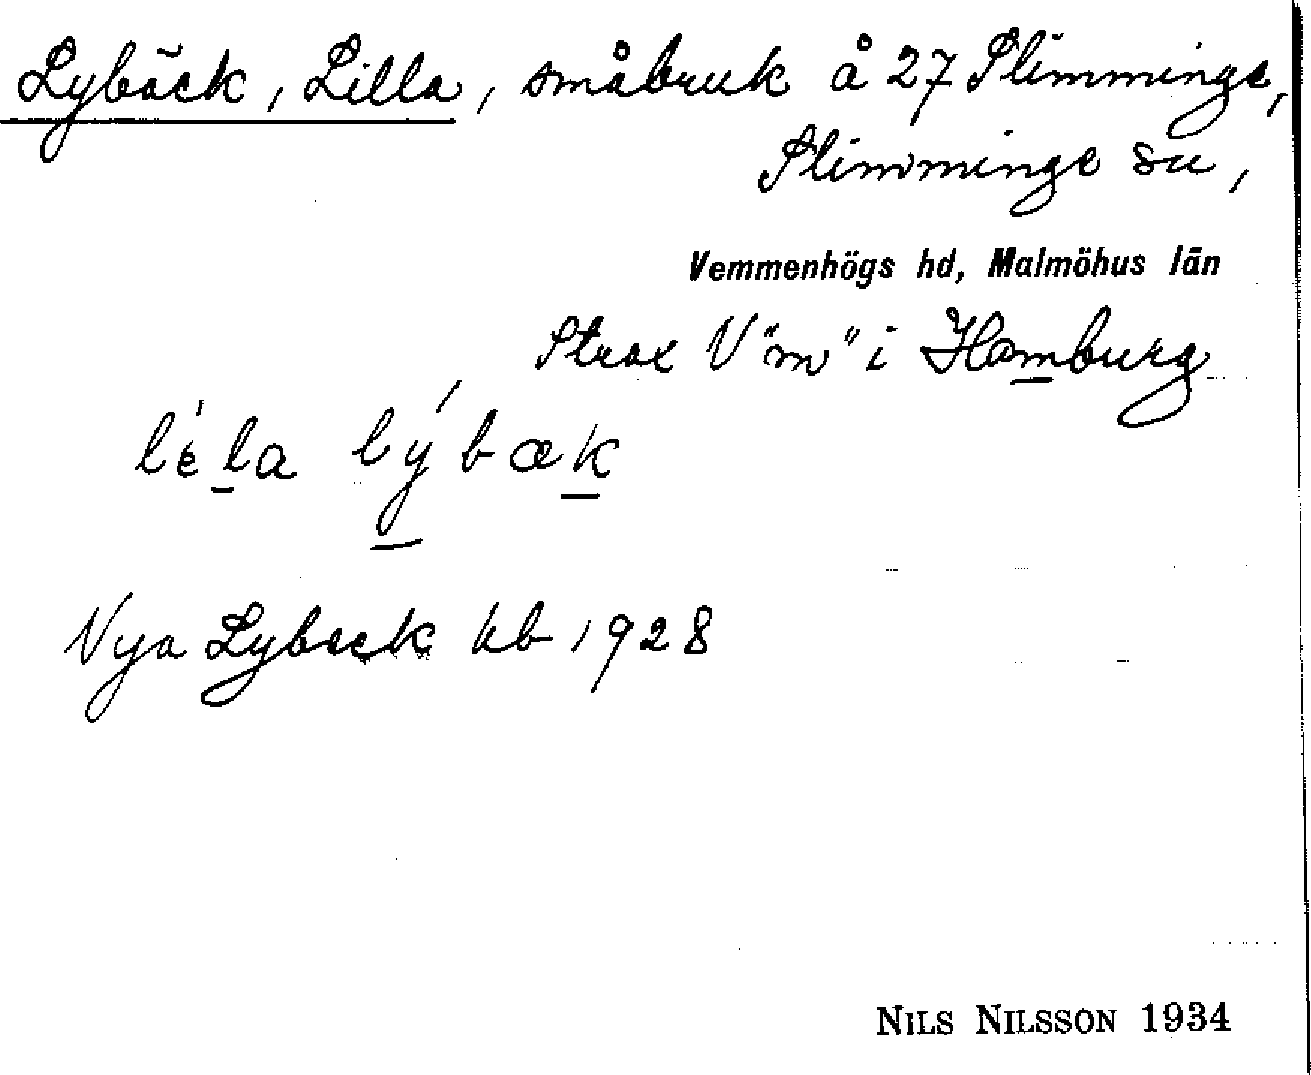 Lybäck, Lilla, småbruk å 27 Slimminge,
Slimminge sn,
Vemmenhögs hd, Malmöhus län
Strax V "m" i Hamburg
léla lýbæk
Nya Lybeck kb 1928
NILS NILSSON 1934